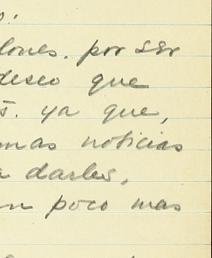 lones. por ser
deseo que
s. ya que,
mas noticias
a darles,
un poco mas